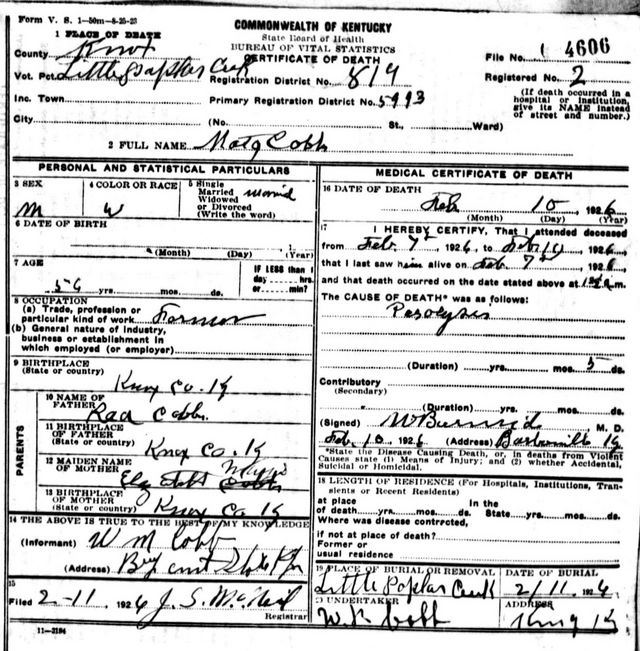 Form V. S. 1-50m-8-25-23
COMMONWEALTH OF KENTUCKY
State Board of Health
BUREAU OF VITAL STATISTICS
CERTIFICATE OF DEATH
1 PLACE OF DEATH
County Knox
File No. 4606
Vot. Pct. Little Poplar Creek Registration District No. 819
Registered No. 2
Inc. Town Primary Registration District No. 5993
(If death occurred in a hospital or institution, give its NAME instead of street and number.)
City (No. St., Ward)
2 FULL NAME Cobb
PERSONAL AND STATISTICAL PARTICULARS
3 SEX
M
4 COLOR OR RACE
W
5 Single
Married
Widowed
or Divorced
(Write the word)
married
6 DATE OF BIRTH
(Month) (Day) (Year)
7 AGE
56 yrs. mos. ds.
IF LESS than 1
day hrs.
or min?
8 OCCUPATION
(a) Trade, profession or
particular kind of work Farmer
(b) General nature of industry,
business or establishment in
which employed (or employer)
9 BIRTHPLACE
(State or country)
Knox Co. Ky
PARENTS
10 NAME OF
FATHER
Cobb
11 BIRTHPLACE
OF FATHER
(State or country)
Knox Co. Ky
12 MAIDEN NAME
OF MOTHER
13 BIRTHPLACE
OF MOTHER
(State or country)
Knox Co Ky
14 THE ABOVE IS TRUE TO THE BEST OF MY KNOWLEDGE
(Informant) W M Cobb
(Address)
15
Filed 2-11 1926 J. S. McNeil
Registrar
11-3184
MEDICAL CERTIFICATE OF DEATH
16 DATE OF DEATH
Feb 10 1926
(Month) (Day) (Year)
17 I HEREBY CERTIFY, That I attended deceased
from Feb 7th 1926, to Feb 10 1926
that I last saw him alive on Feb 7th 1926
and that death occurred on the date stated above at m.
The CAUSE OF DEATH* was as follows:
Paralysis
(Duration) yrs. mos. 5 ds.
Contributory
(Secondary)
(Duration) yrs. mos. ds.
(Signed) M. D.
Feb. 10 1926 (Address) Barbourville Ky
*State the Disease Causing Death, or, in deaths from Violent
Causes state (1) Means of Injury; and (2) whether Accidental,
Suicidal or Homicidal.
18 LENGTH OF RESIDENCE (For Hospitals, Institutions, Tran-
sients or Recent Residents)
At place In the
of death yrs. mos. ds. State yrs. mos. ds.
Where was disease contrrcted,
if not at place of death?
Former or
usual residence
19 PLACE OF BURIAL OR REMOVAL
Little Poplar Creek
DATE OF BURIAL
2/11 1926
UNDERTAKER
Cobb
ADDRESS
Ky